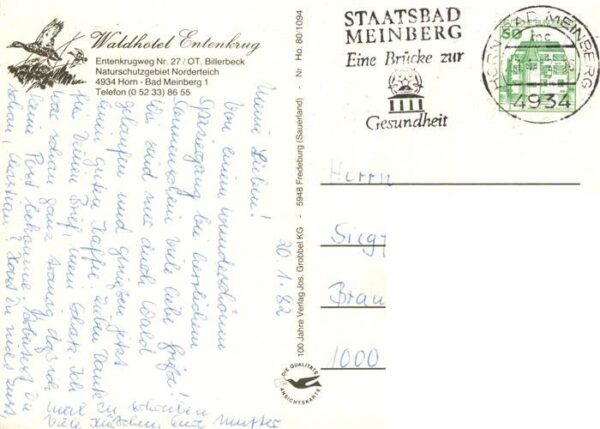 Waldhotel Entenkrug
Entenkrugweg Nr. 27 / OT. Billerbeck
Naturschutzgebiet Norderteich
4934 Horn - Bad Meinberg 1
Telefon (0 52 33) 86 55
20.1.82
Meine Lieben!
Von einem wunderschönen
Spaziergang bei herrlichem
Sonnenschein viele liebe Grüße!
Wir sind mit durch Wald
gelaufen und genießen jetzt
einen guten Kaffee. Lieben Dank
für Deinen Brief, mein Schatz. Ich
war schon ganz traurig daß ich
keine Post bekomme.
schon, Hans
mal zu schreiben
Viele Küßchen, Mutter
100 Jahre Verlag Jos. Grobbel KG - 5948 Fredeburg (Sauerland) - Nr. Ho. 80/1094
DIE QUALITÄTS
ANSICHTSKARTE
STAATSBAD
MEINBERG
Eine Brücke zur
Gesundheit
HORN-BAD MEINBERG
4934
50
Herrn
Sieg
Brau
1000